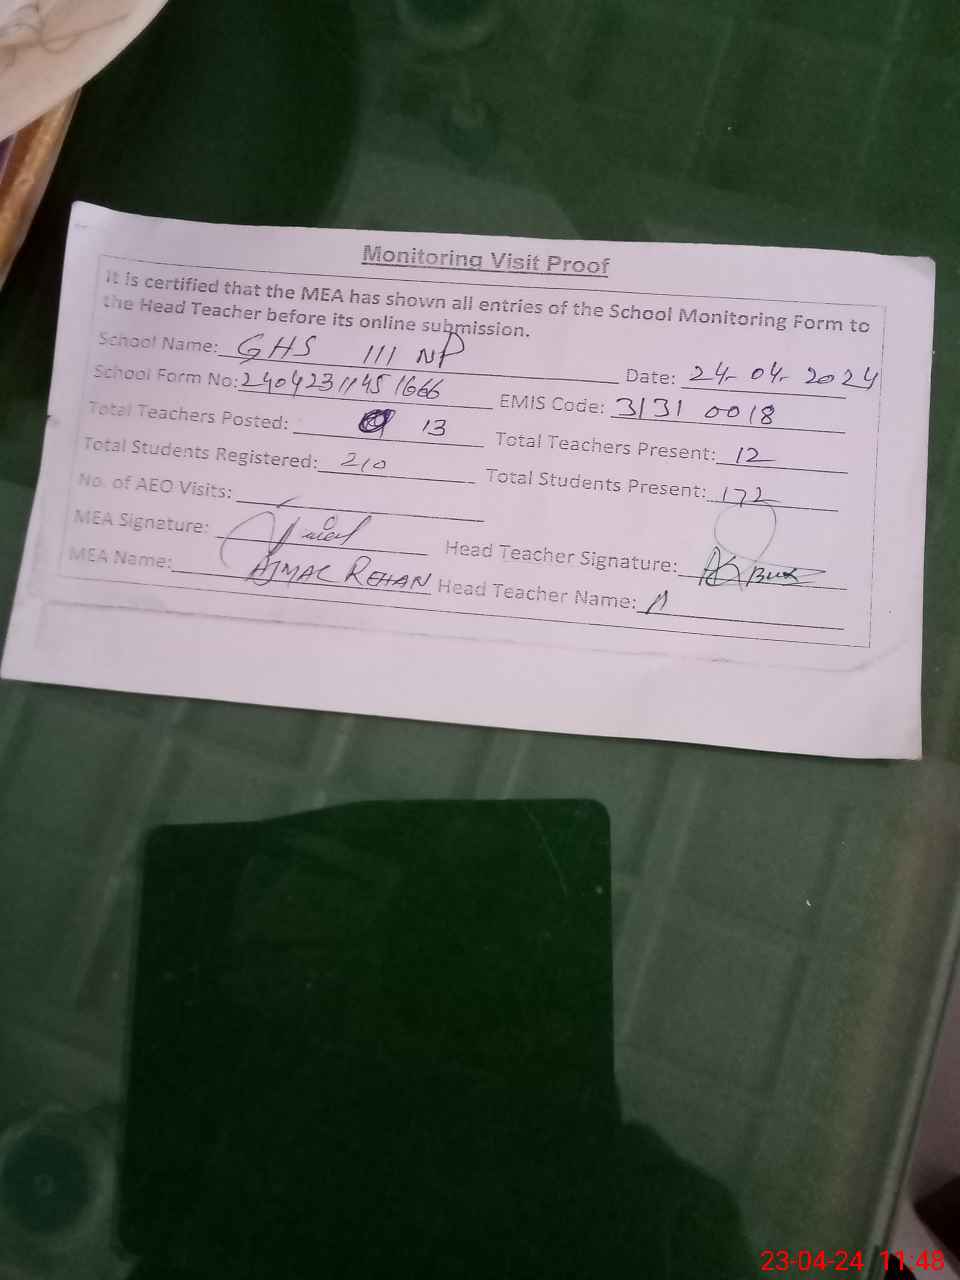 Monitoring Visit Proof
It is certified that the MEA has shown all entries of the School Monitoring Form to
the Head Teacher before its online submission.
School Name: GHS 111 NP Date: 24-04-2024
School Form No: 2404231145 1666 EMIS Code: 3131 0018
Total Teachers Posted: 13 Total Teachers Present: 12
Total Students Registered: 210 Total Students Present: 172
No. of AEO Visits:
MEA Signature: Head Teacher Signature:
MEA Name: AJMAL REHAN Head Teacher Name:
23-04-24 11:48